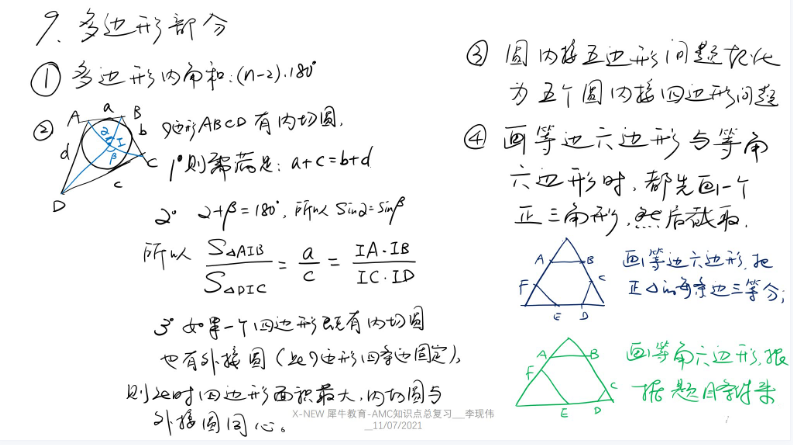 9、多边形部分
① 多边形内角和:(n-2)·180°
② 四边形ABCD有内切圆,
A a B
b
d
α I
β
C
c
D
1° 则需满足: a+c=b+d
2° α+β=180°, 所以 Sinα=Sinβ
所以 S△AIB/S△DIC = a/c = IA·IB/IC·ID
3° 如果一个四边形既有内切圆
也有外接圆(此四边形四条边固定),
则此时四边形面积最大,内切圆与
外接圆同心。
③ 圆内接五边形问题转化
为五个圆内接四边形问题
④ 画等边六边形与等角
六边形时,都先画一个
正三角形,然后截取.
A B
F C
E D
画等边六边形,把
正△的每条边三等分;
A B
F C
E D
画等角六边形,根
据题目条件来
X-NEW 犀牛教育-AMC知识点总复习__李现伟
__11/07/2021